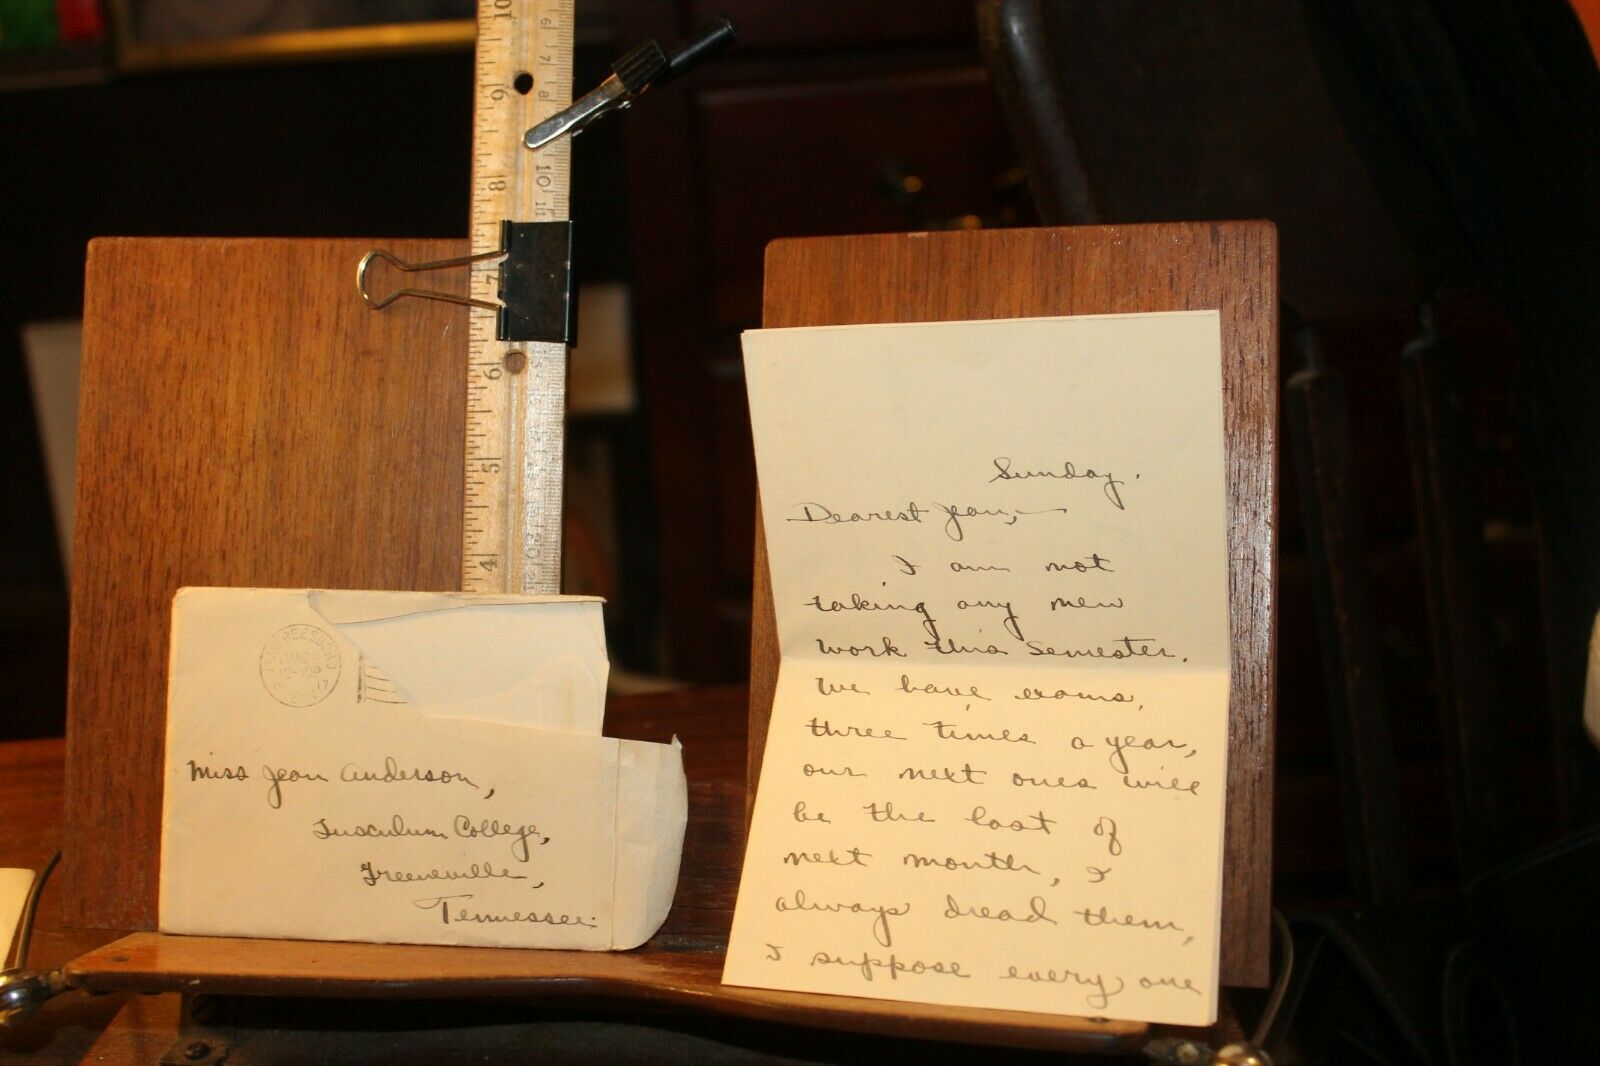 MURFREESBORO
JAN 2
12-30P
17
TENN.
Miss Jean Anderson,
Tusculum College,
Greeneville,
Tennessee.
Sunday.
Dearest Jean,—
I am not
taking any new
work this semester.
We have exams,
three times a year,
our next ones will
be the last of
next month, I
always dread them,
I suppose every one
10
9
8
7
6
5
4
6
7
8
10
11
20